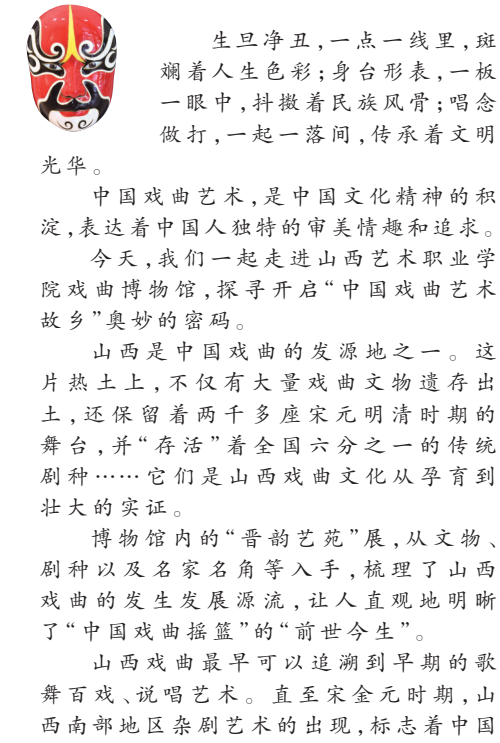 生旦净丑，一点一线里，斑
斓着人生色彩；身台形表，一板
一眼中，抖擞着民族风骨；唱念
做打，一起一落间，传承着文明
光华。
中国戏曲艺术，是中国文化精神的积
淀，表达着中国人独特的审美情趣和追求。
今天，我们一起走进山西艺术职业学
院戏曲博物馆，探寻开启“中国戏曲艺术
故乡”奥妙的密码。
山西是中国戏曲的发源地之一。这
片热土上，不仅有大量戏曲文物遗存出
土，还保留着两千多座宋元明清时期的
舞台，并“存活”着全国六分之一的传统
剧种……它们是山西戏曲文化从孕育到
壮大的实证。
博物馆内的“晋韵艺苑”展，从文物、
剧种以及名家名角等入手，梳理了山西
戏曲的发生发展源流，让人直观地明晰
了“中国戏曲摇篮”的“前世今生”。
山西戏曲最早可以追溯到早期的歌
舞百戏、说唱艺术。直至宋金元时期，山
西南部地区杂剧艺术的出现，标志着中国